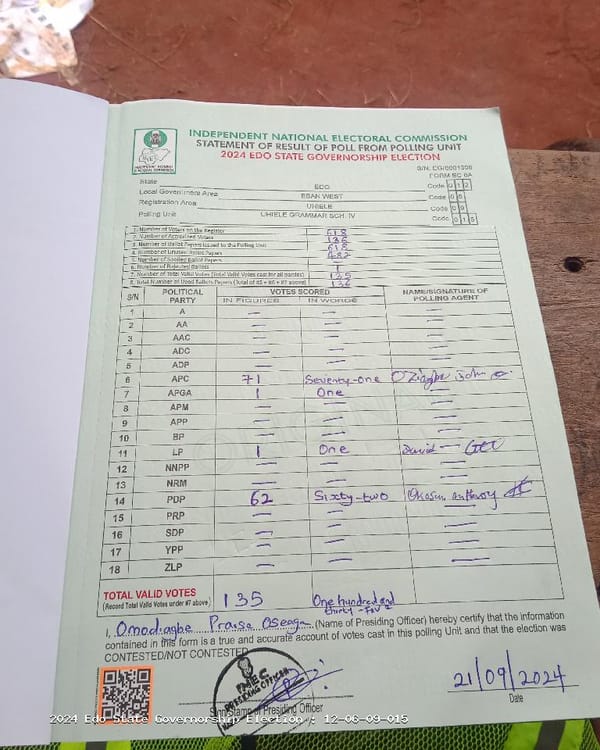 INDEPENDENT NATIONAL ELECTORAL COMMISSION
STATEMENT OF RESULT OF POLL FROM POLLING UNIT
2024 EDO STATE GOVERNORSHIP ELECTION
FORM EC 8A
State EDO Code 012
Local Government Area ESAN WEST Code 06
Registration Area UHIELE Code 09
Polling Unit UHIELE GRAMMAR SCH. IV Code 015
1. Number of Voters on the Register 618
2. Number of Accredited Voters 136
3. Number of Ballot Papers Issued to the Polling Unit 618
4. Number of Unused Ballot Papers 482
5. Number of Spoiled Ballot Papers —
6. Number of Rejected Ballots 1
7. Number of Total Valid Votes (Total Valid Votes cast for all parties) 135
8. Total Number of Used Ballot Papers (Total of #5 + #6 + #7 above) 136
S/N POLITICAL PARTY VOTES SCORED NAME/SIGNATURE OF POLLING AGENT
IN FIGURES IN WORDS
1 A — — —
2 AA — — —
3 AAC — — —
4 ADC — — —
5 ADP — — —
6 APC 71 Seventy-one John
7 APGA 1 One —
8 APM — — —
9 APP — — —
10 BP — — —
11 LP 1 One David
12 NNPP — — —
13 NRM — — —
14 PDP 62 Sixty-two Okosun Anthony
15 PRP — — —
16 SDP — — —
17 YPP — — —
18 ZLP — — —
TOTAL VALID VOTES 135 One hundred and thirty-five
(Record Total Valid Votes under #7 above)
I, Omodiagbe Praise Oseaga (Name of Presiding Officer) hereby certify that the information
contained in this form is a true and accurate account of votes cast in this polling Unit and that the election was
CONTESTED/NOT CONTESTED
INEC
PRESIDING OFFICER
Sign/Stamp of Presiding Officer
21/09/2024
Date
2024 Edo State Governorship Election : 12-06-09-015